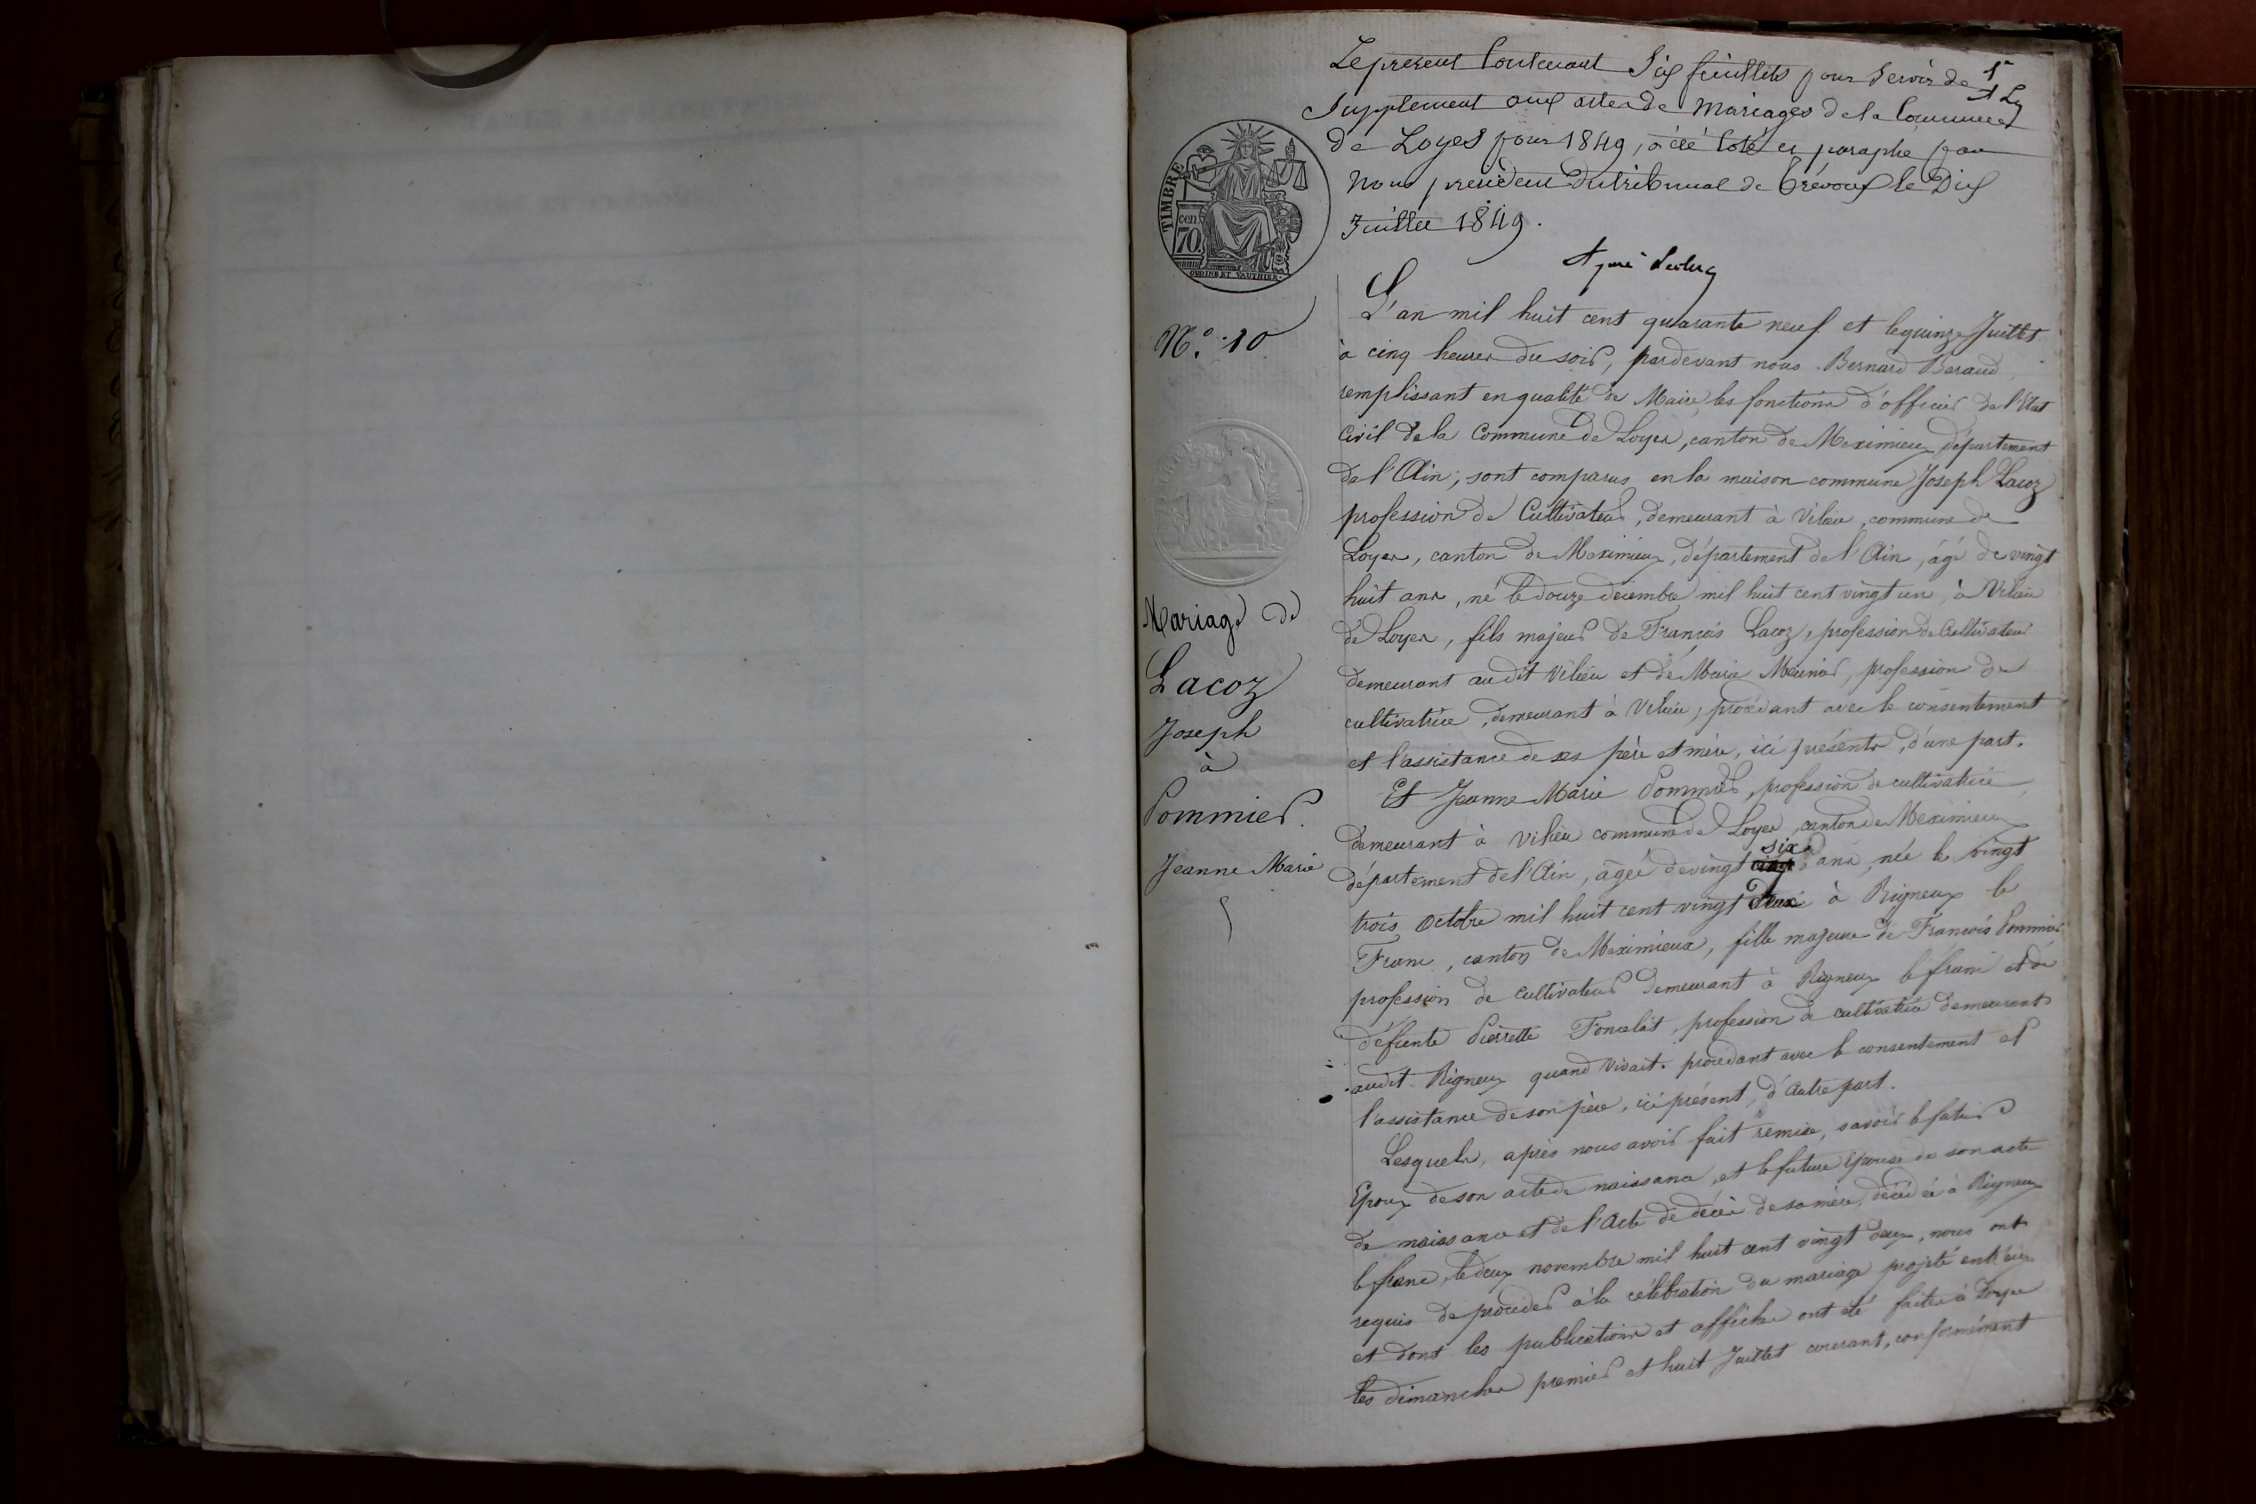 Le présent contenant Six feuillets pour Servir de 1er
Supplement aux actes de Mariages de la Commune
de Loyes pour 1849, a été coté et paraphé par
Nous président du tribunal de trévoux le Dix
Juillet 1849.
TIMBRE
cen
70
OUDINÉ ET VAUTHIER
N.º 10
L'an mil huit cent quarante neuf et le quinze Juillet
à cinq heures du soir, pardevant nous Bernard Beraud,
remplissant en qualité de Maire les fonctions d'officier de l'Etat
Civil de la Commune de Loyes, canton de Meximieux département
de l'Ain; sont comparus en la maison commune Joseph Lacoz
profession de Cultivateur, demeurant à Vilieu, commune de
Loyes, canton de Meximieux, département de l'Ain, âgé de vingt
huit ans, né le douze decembre mil huit cent vingt un, à Vilieu
de Loyes, fils majeur de François Lacoz, profession de Cultivateur
demeurant audit Vilieu et de Marie Meunier, profession de
cultivatrice, demeurant à Vilieu, procédant avec le consentement
et l'assistance de ses père et mère, ici présents, d'une part.
Mariage de
Lacoz
Joseph
à
Pommier.
Jeanne Marie
Et Jeanne Marie Pommier, profession de cultivatrice,
demeurant à Vilieu commune de Loyes, canton de Meximieux
département de l'Ain, âgée de vingt six ans, née le vingt
trois Octobre mil huit cent vingt deux à Rigneux le
Franc, canton de Meximieux, fille majeure de François Pommier
profession de cultivateur demeurant à Rigneux le franc et de
défunte Pierrette Foncelet, profession de cultivatrice demeurant
audit Rigneux quand vivait. procédant avec le consentement et
l'assistance de son père, ici présent, d'autre part.
Lesquels, après nous avoir fait remise, savoir le futur
Epoux de son acte de naissance, et la future Epouse de son acte
de naissance et de l'Acte de décès de sa mère, décédée à Rigneux
le franc, le deux novembre mil huit cent vingt deux, nous ont
requis de procéder à la célébration du mariage projeté entr'eux
et dont les publications et affiches ont été faites à Loyes
les dimanches premier et huit Juillet courant, conformément